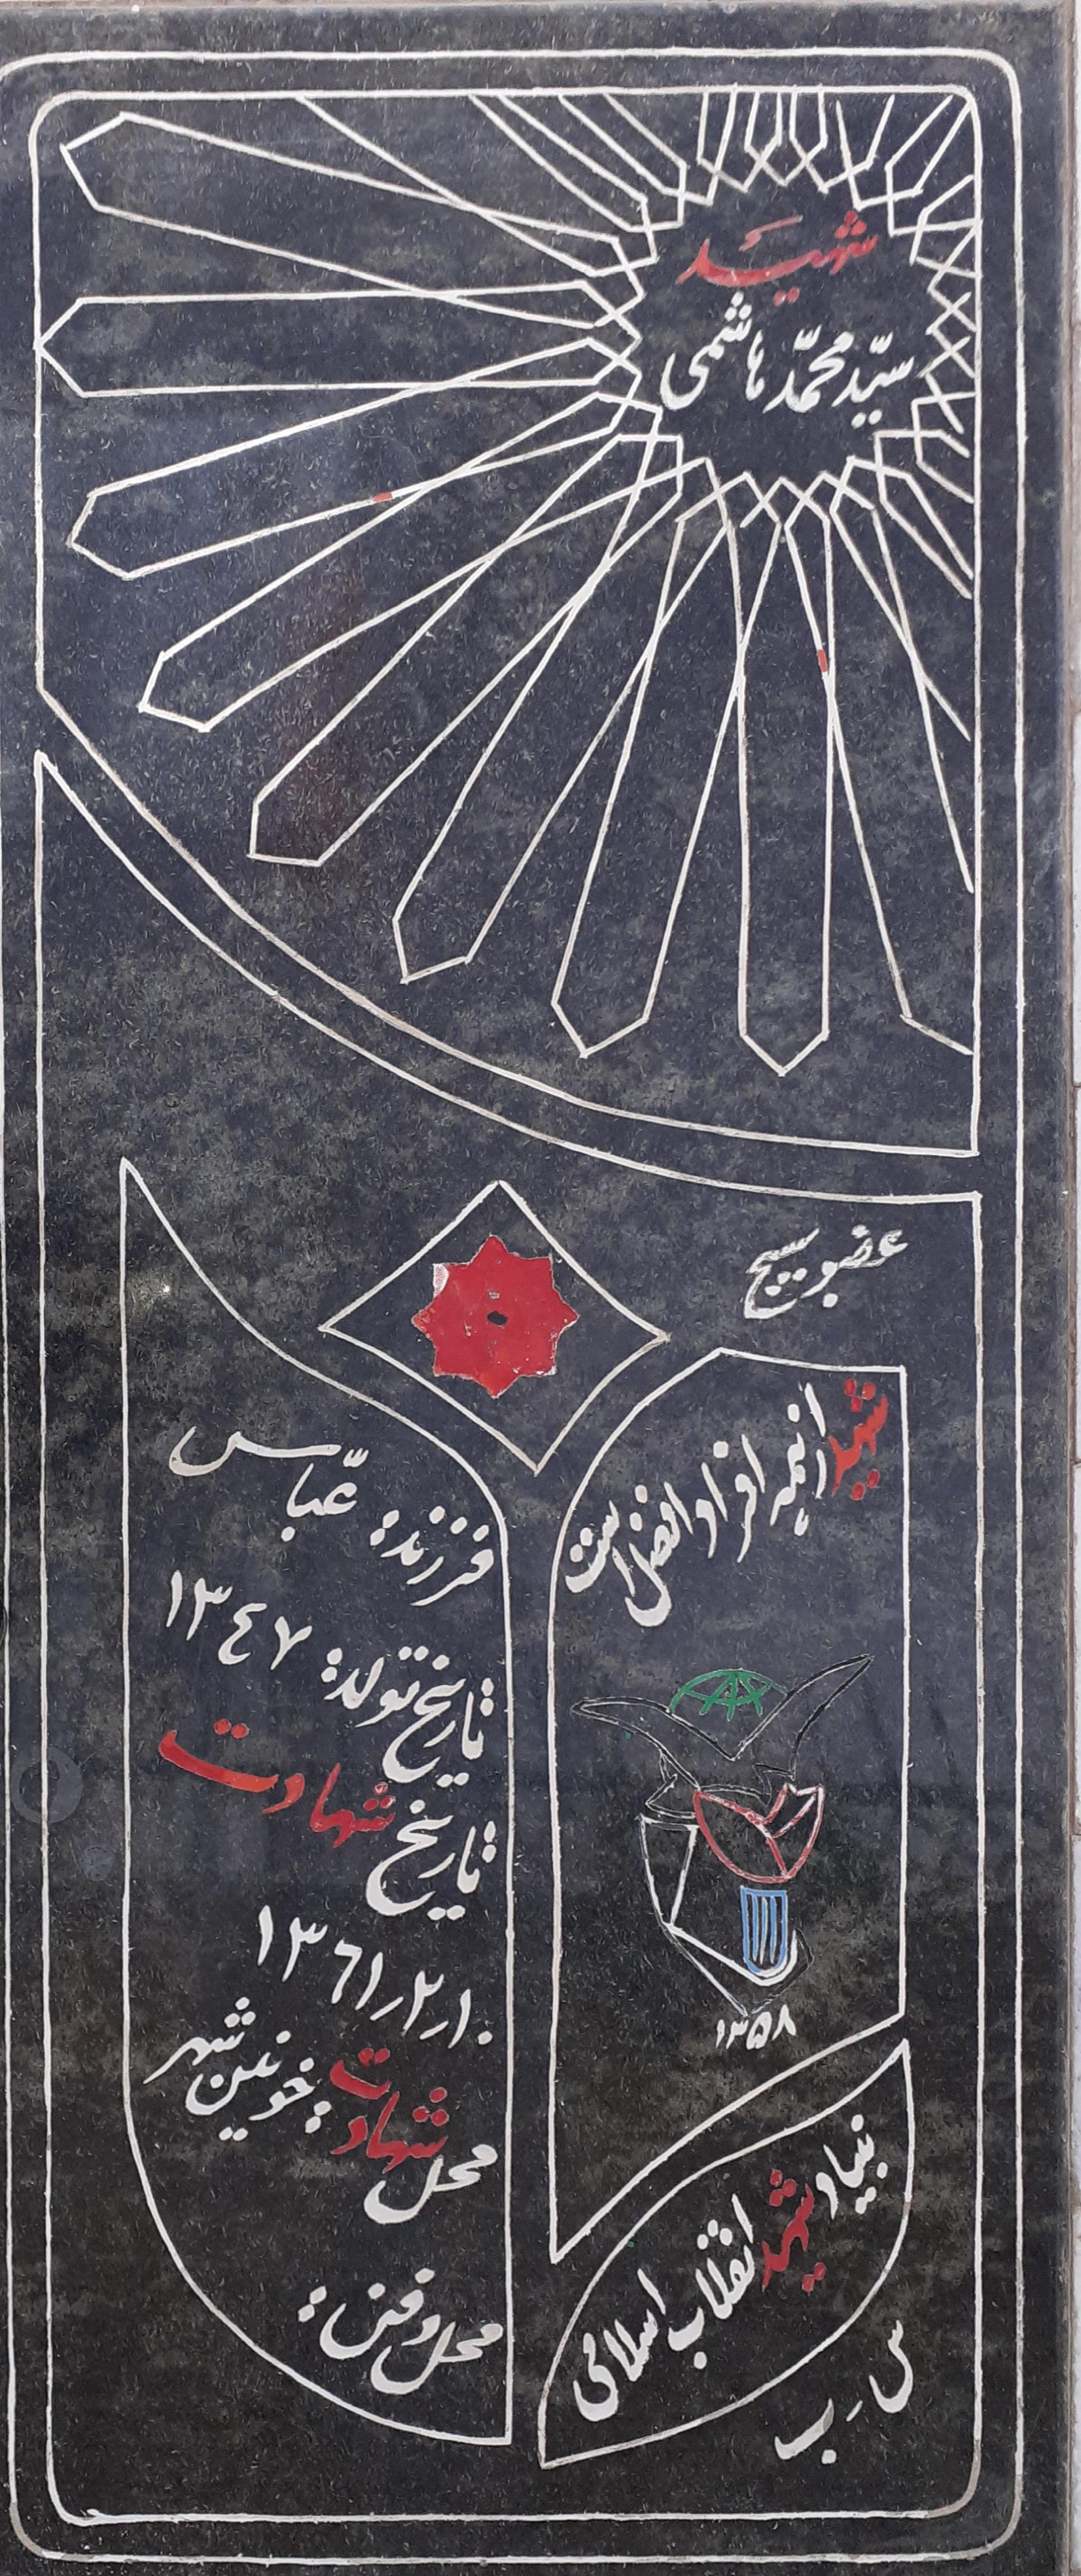 شهید
سیّد محمّد هاشمی
عضو بسیج
شهید از همه افراد افضل است
۱۳۵۸
بنیاد شهید انقلاب اسلامی
س ر ب
فرزند: عبّاس
تاریخ تولد: ۱۳٤۷
تاریخ شهادت
۱۳٦۱٫۲٫۱۰
محل شهادت: خونین شهر
محل دفن: